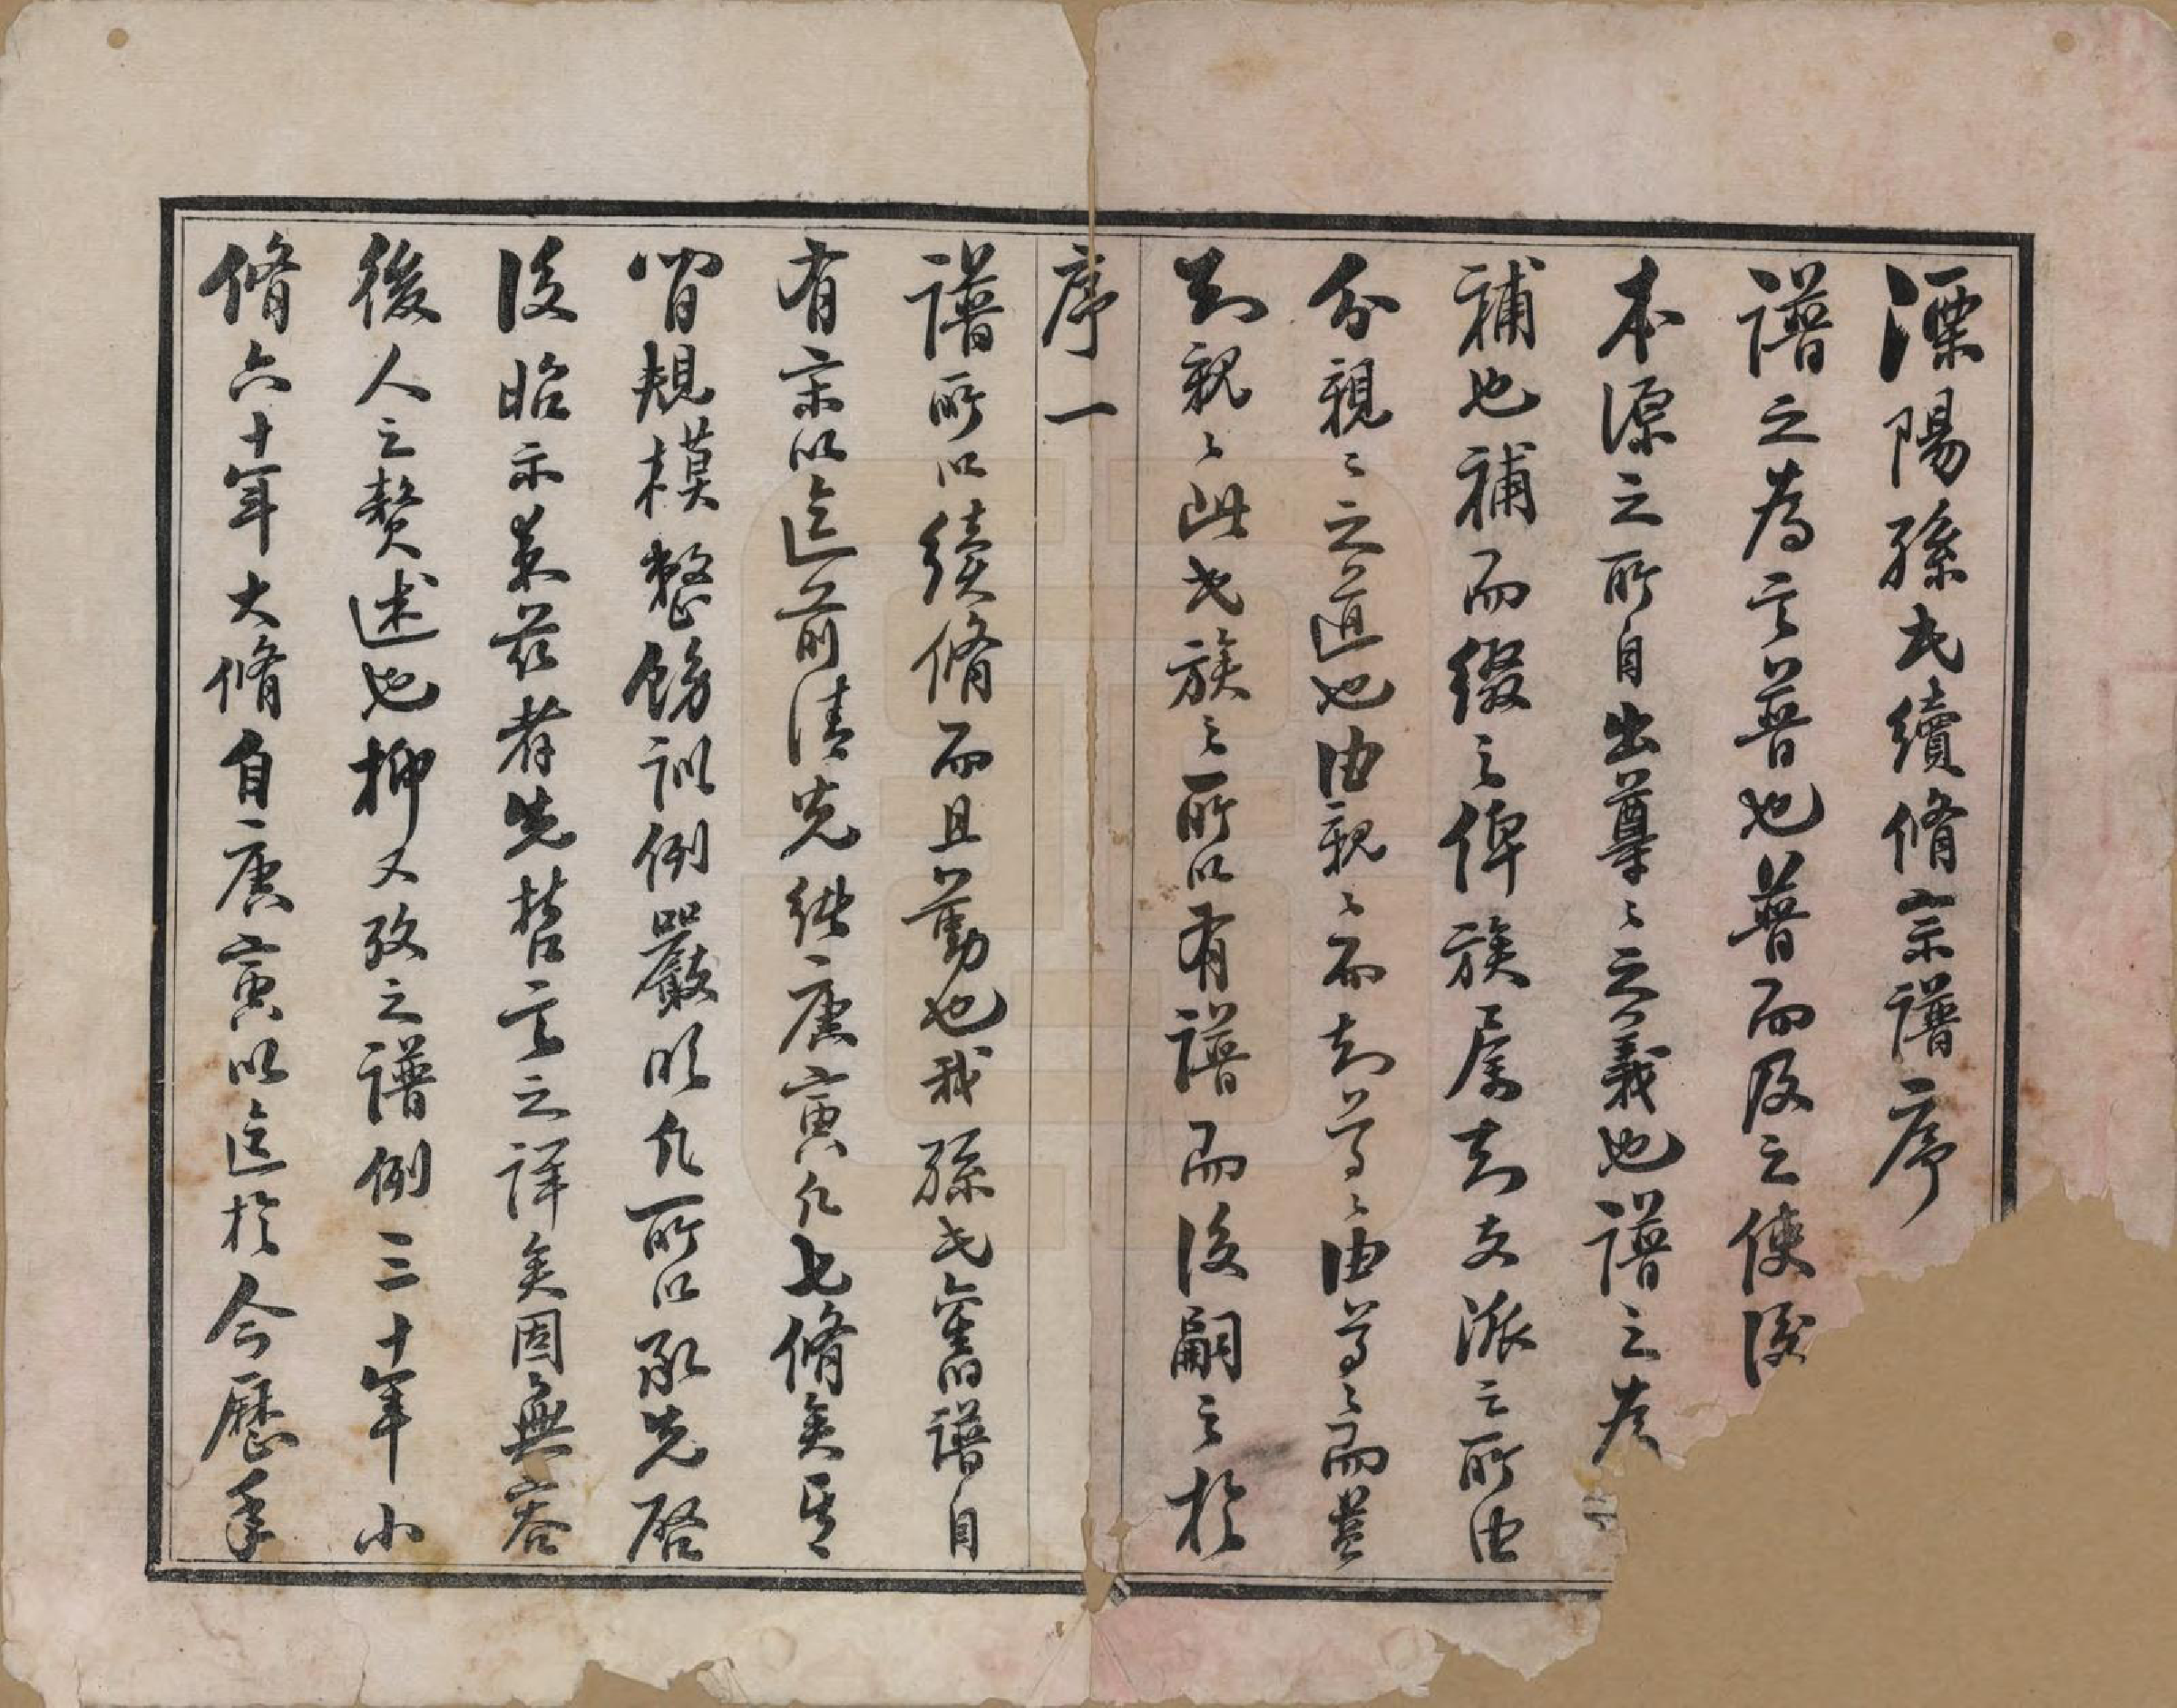 溧陽孫氏續脩宗譜序
譜之為言普也普而及之使後
本源之所自出尊〻之義也譜之為
補也補而綴之俾族屬知支派之所由
分親〻之道也由親〻而知尊〻由尊〻而益
知親〻此氏族之所以有譜而後嗣之於
序一
譜所以續脩而且勤也我孫氏舊譜自
有宋以迄前清光緒庚寅凡七脩矣其
間規模整飭訓例嚴明凡所以承先啓
後昭示来茲者先哲言之詳矣固無容
後人之贅述也抑又攷之譜例三十年小
脩六十年大脩自庚寅以迄於今歷年